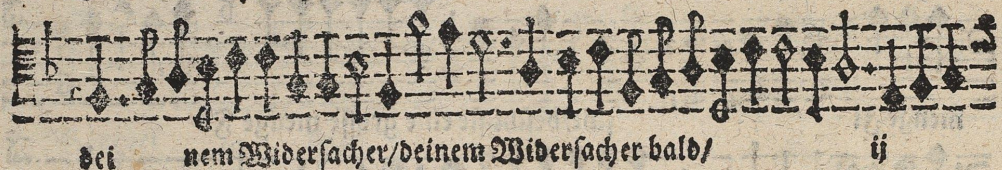 dei nem Widerſacher/deinem Widerſacher bald/ ij